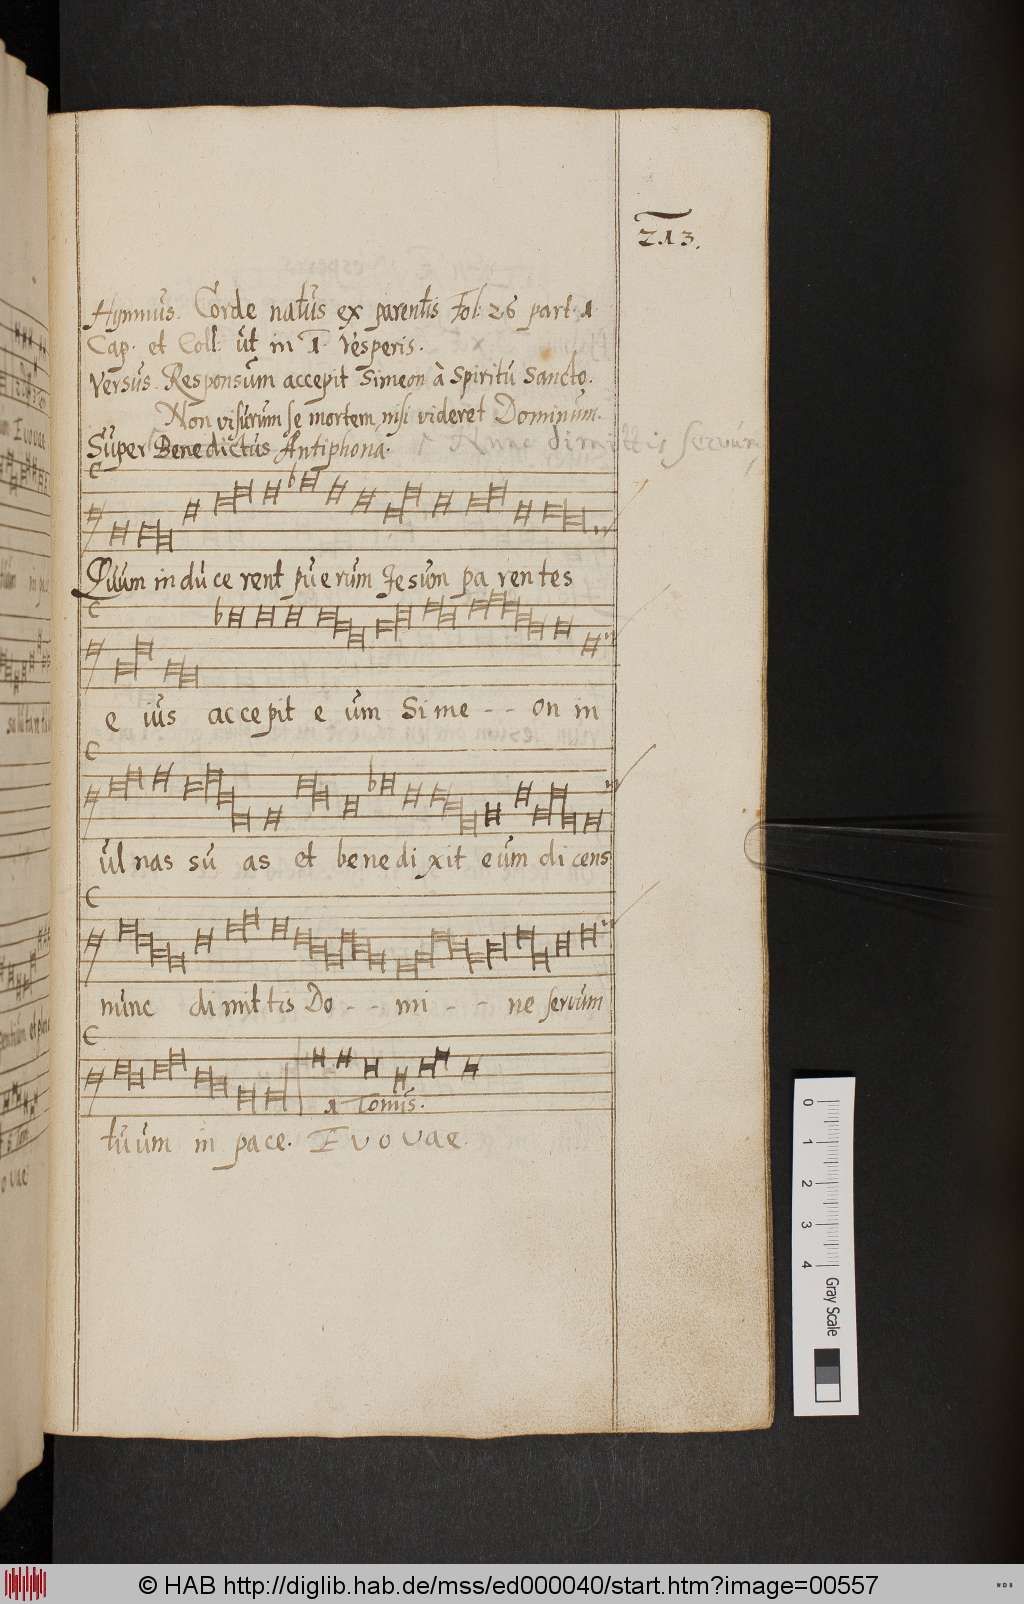 213.
Hymnus. Corde natus ex parentis Fol: 26 part. 1
Cap. et Coll: ut in 1. Vesperis.
Versus. Responsum accepit Simeon à Spiritu Sancto.
Non visurum se mortem, nisi videret Dominum.
Super Benedictus Antiphona. Nunc dimittis servum
Quum in du ce rent pu e rum Jesum pa rentes
e ius accepit e um Sime - - on in
ul nas su as et benedixit eum dicens
nunc dimittis Do - - mi - - ne servum
1 Tonus.
tuum in pace. Evovae.
Evovae
0 1 2 3 4 Gray Scale
© HAB http://diglib.hab.de/mss/ed000040/start.htm?image=00557